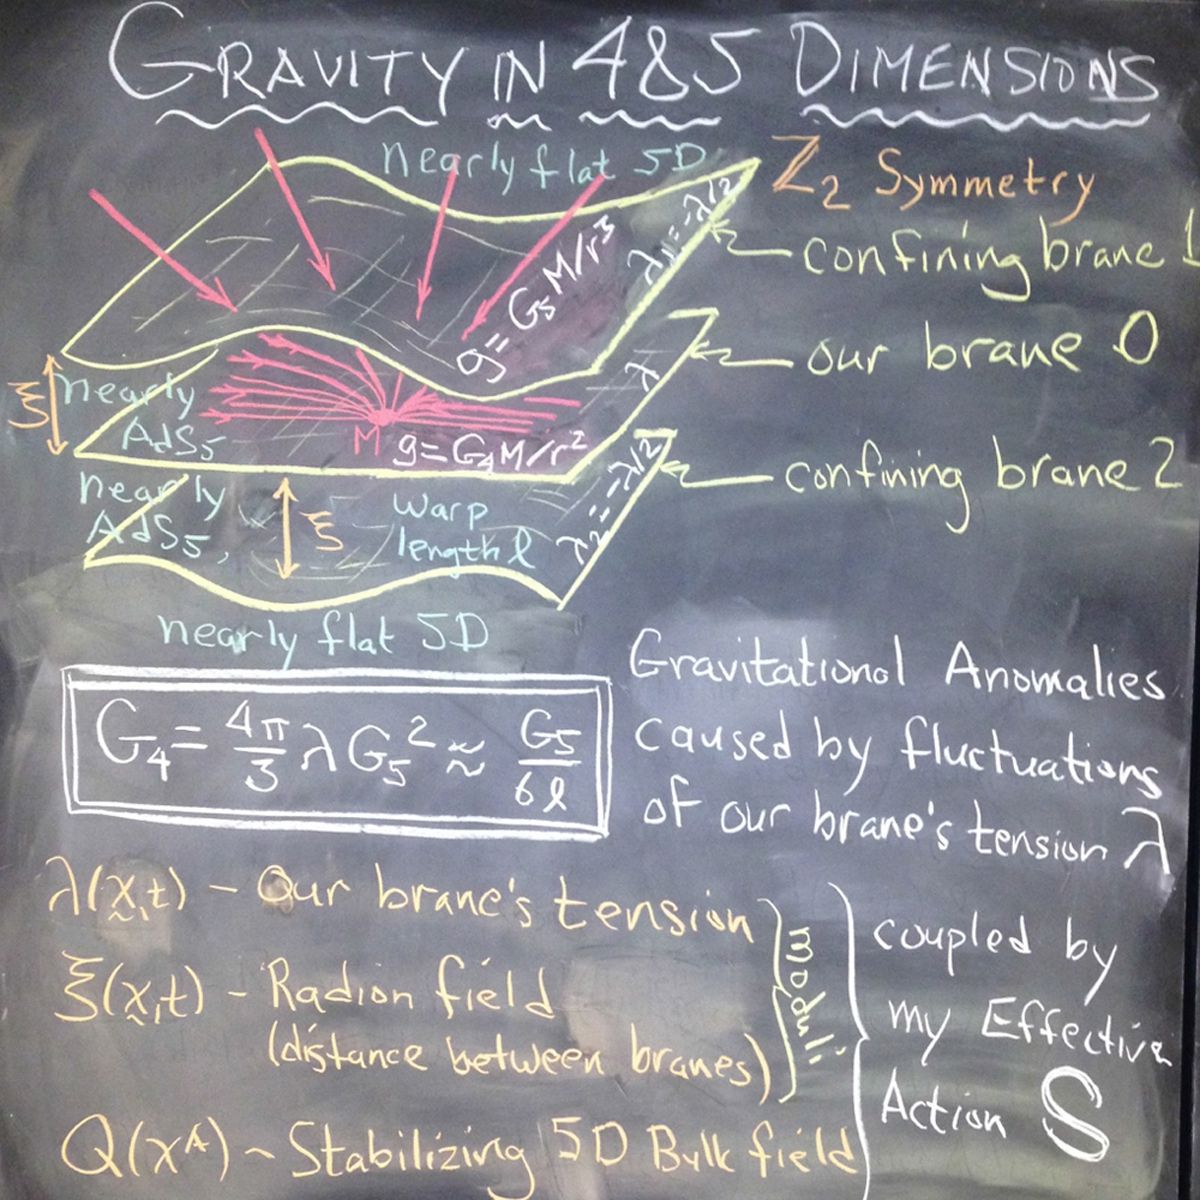 GRAVITY IN 4&5 DIMENSIONS
nearly flat 5D
Z₂ Symmetry
confining brane 1
λ₁=-λ/2
g=G₅M/r³
our brane 0
λ
ξ
nearly
AdS₅
M
g=G₄M/r²
confining brane 2
λ₂=-λ/2
nearly
AdS₅,
ξ
warp
length ℓ
nearly flat 5D
G₄=4π/3 λG₅²≈G₅/6ℓ
Gravitational Anomalies
caused by fluctuations
of our brane's tension λ
λ(x,t) - Our brane's tension
ξ(x,t) - Radion field
(distance between branes)
moduli
Q(xᴬ) ~ Stabilizing 5D Bulk field
coupled by
my Effective
Action S